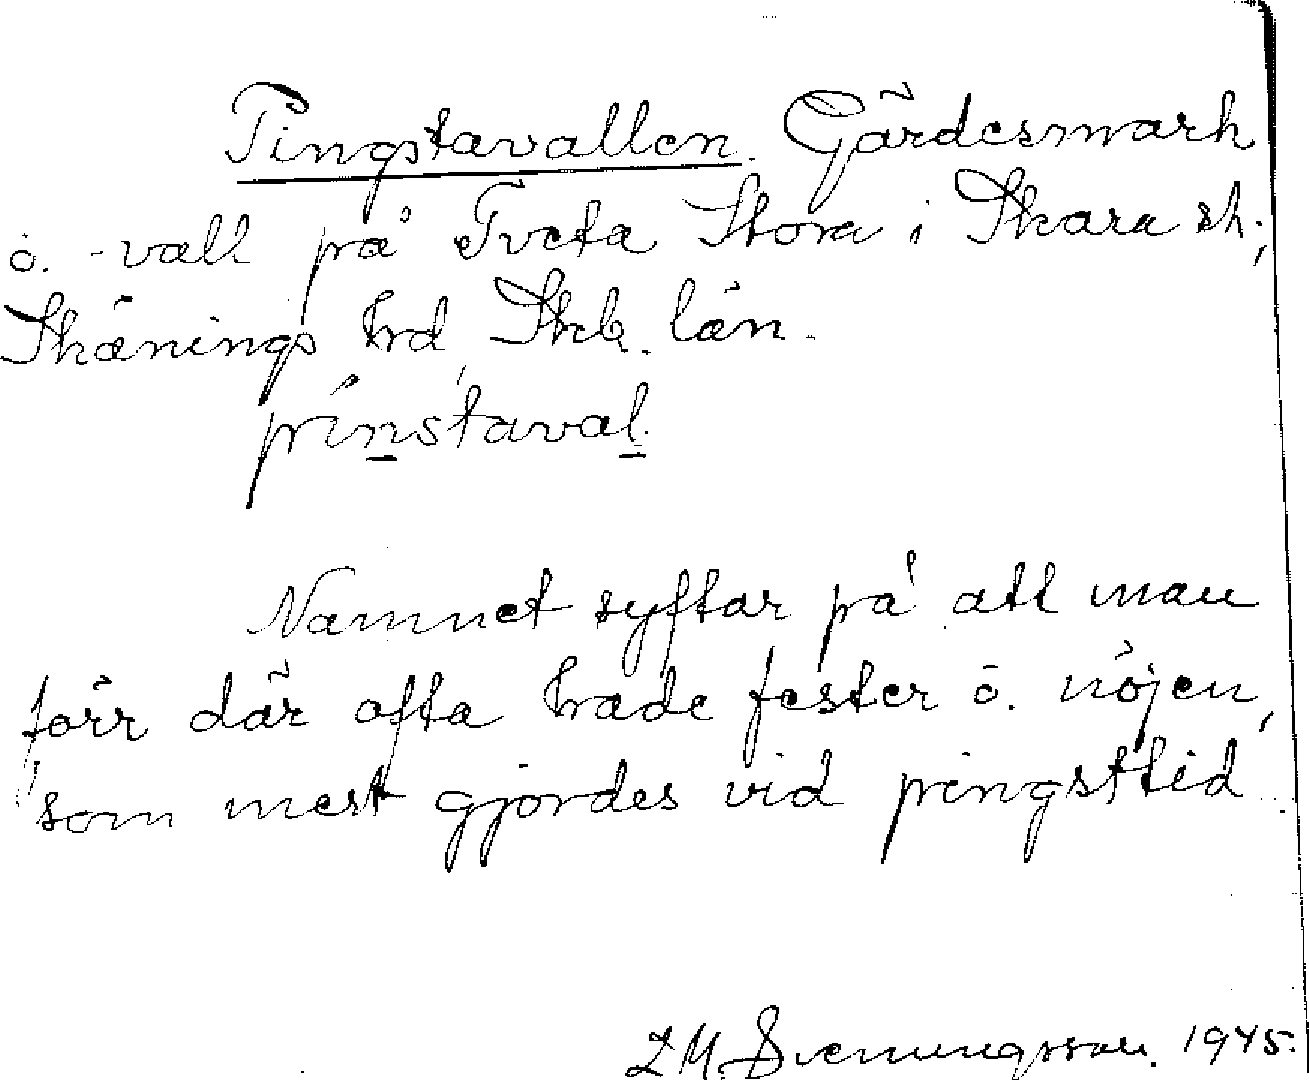 Pingstavallen. Gärdesmark
o. -vall på Tveta Stora i Skara sk;
Skånings hrd, Skb. län.
pı́nstaval.
Namnet syftar på att man
förr där ofta hade fester o. nöjen,
som mest gjordes vid pingsttid.
L M. Svenungsson. 1945.